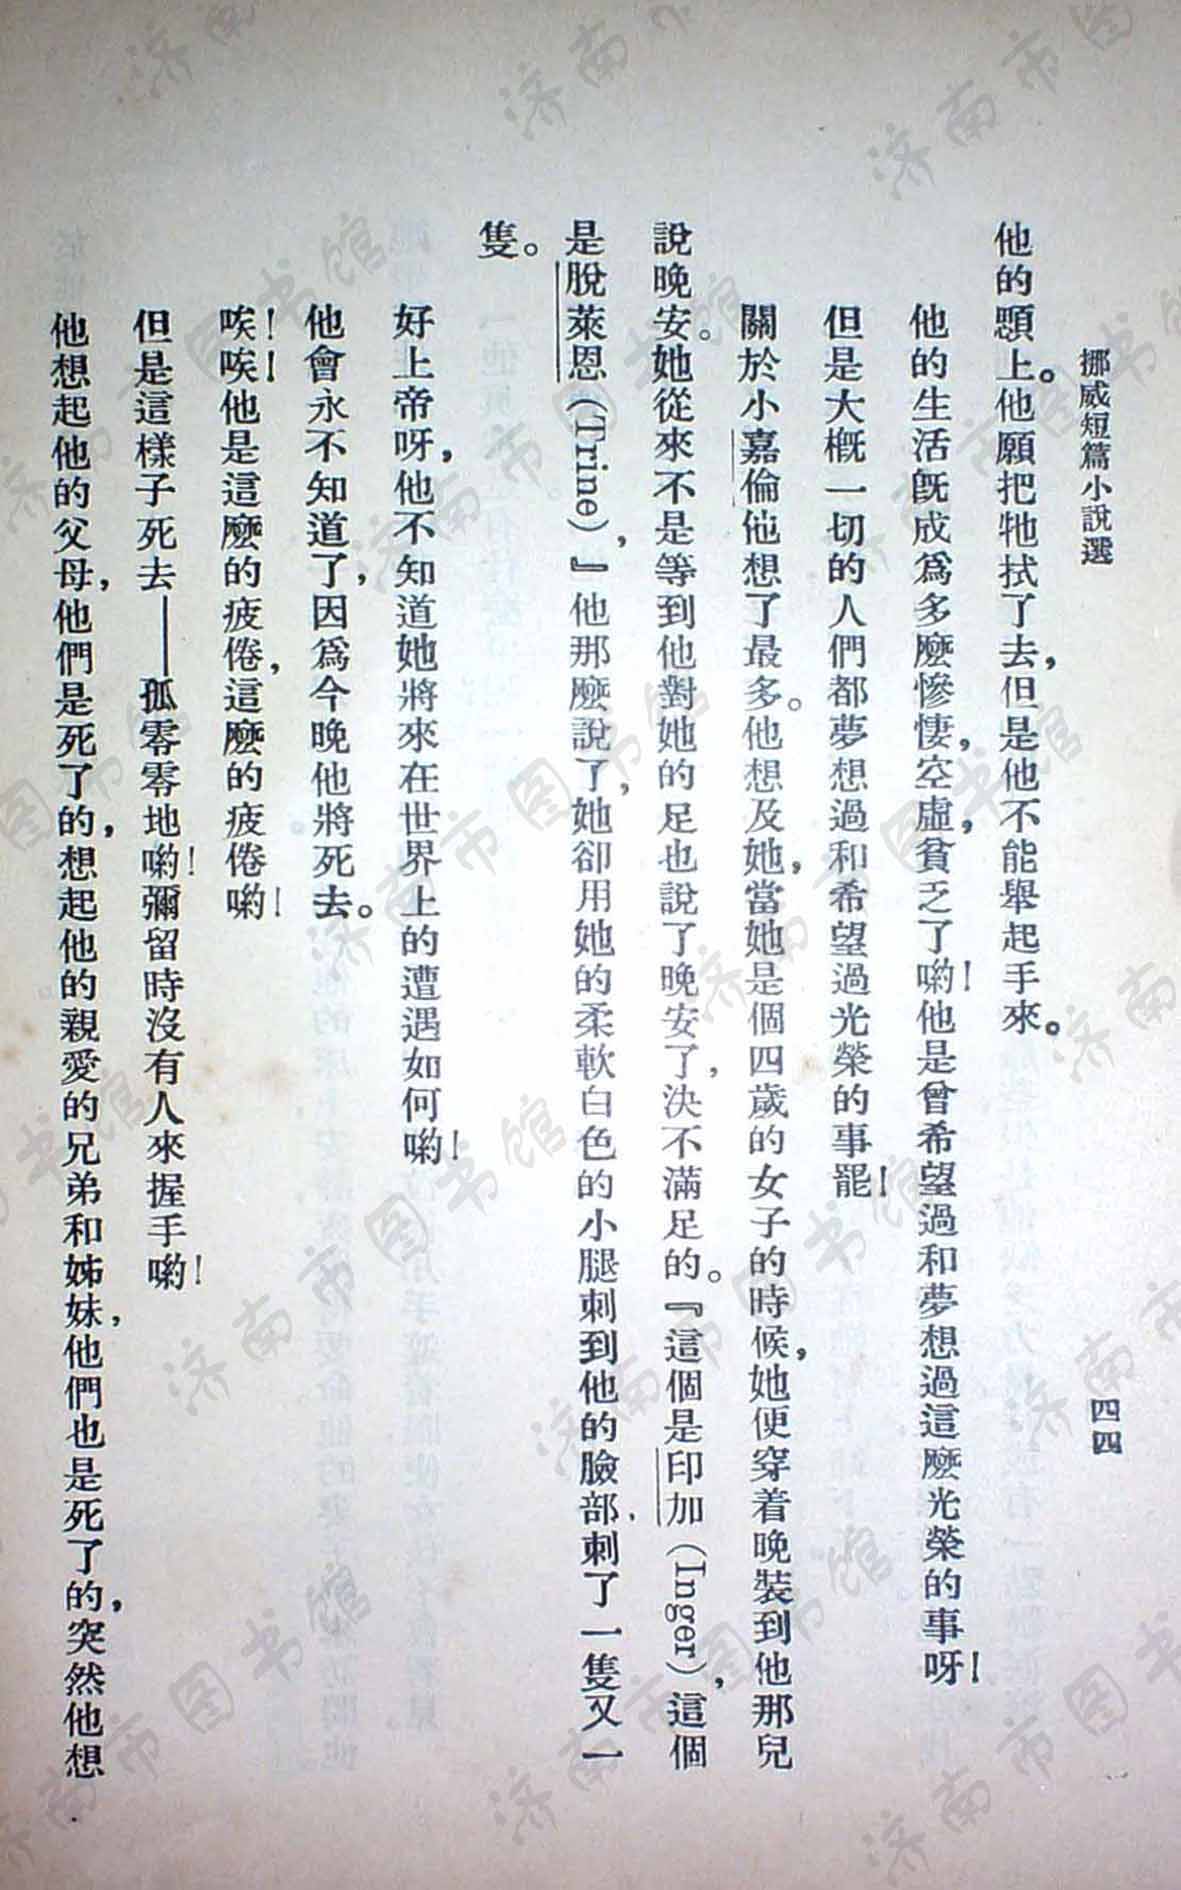 挪威短篇小說選
四四
他的顋上。他願把牠拭了去，但是他不能舉起手來。
他的生活旣成爲多麼慘悽，空虛，貧乏了喲！他是曾希望過和夢想過這麼光榮的事呀！
但是大槪一切的人們都夢想過和希望過光榮的事罷！
關於小嘉倫他想了最多。他想及她，當她是個四歲的女子的時候，她便穿着晚裝到他那兒
說晚安。她從來不是等到他對她的足也說了晚安了，決不滿足的。『這個是印加（Inger），這個
是脫萊恩（Trine），』他那麼說了，她卻用她的柔軟白色的小腿刺到他的臉部，刺了一隻又一
隻。
好上帝呀，他不知道她將來在世界上的遭遇如何喲！
他會永不知道了，因爲今晚他將死去。
唉！唉！他是這麼的疲倦，這麼的疲倦喲！
但是這樣子死去——孤零零地喲！彌留時沒有人來握手喲！
他想起他的父母，他們是死了的，想起他的親愛的兄弟和姊妹，他們也是死了的，突然他想